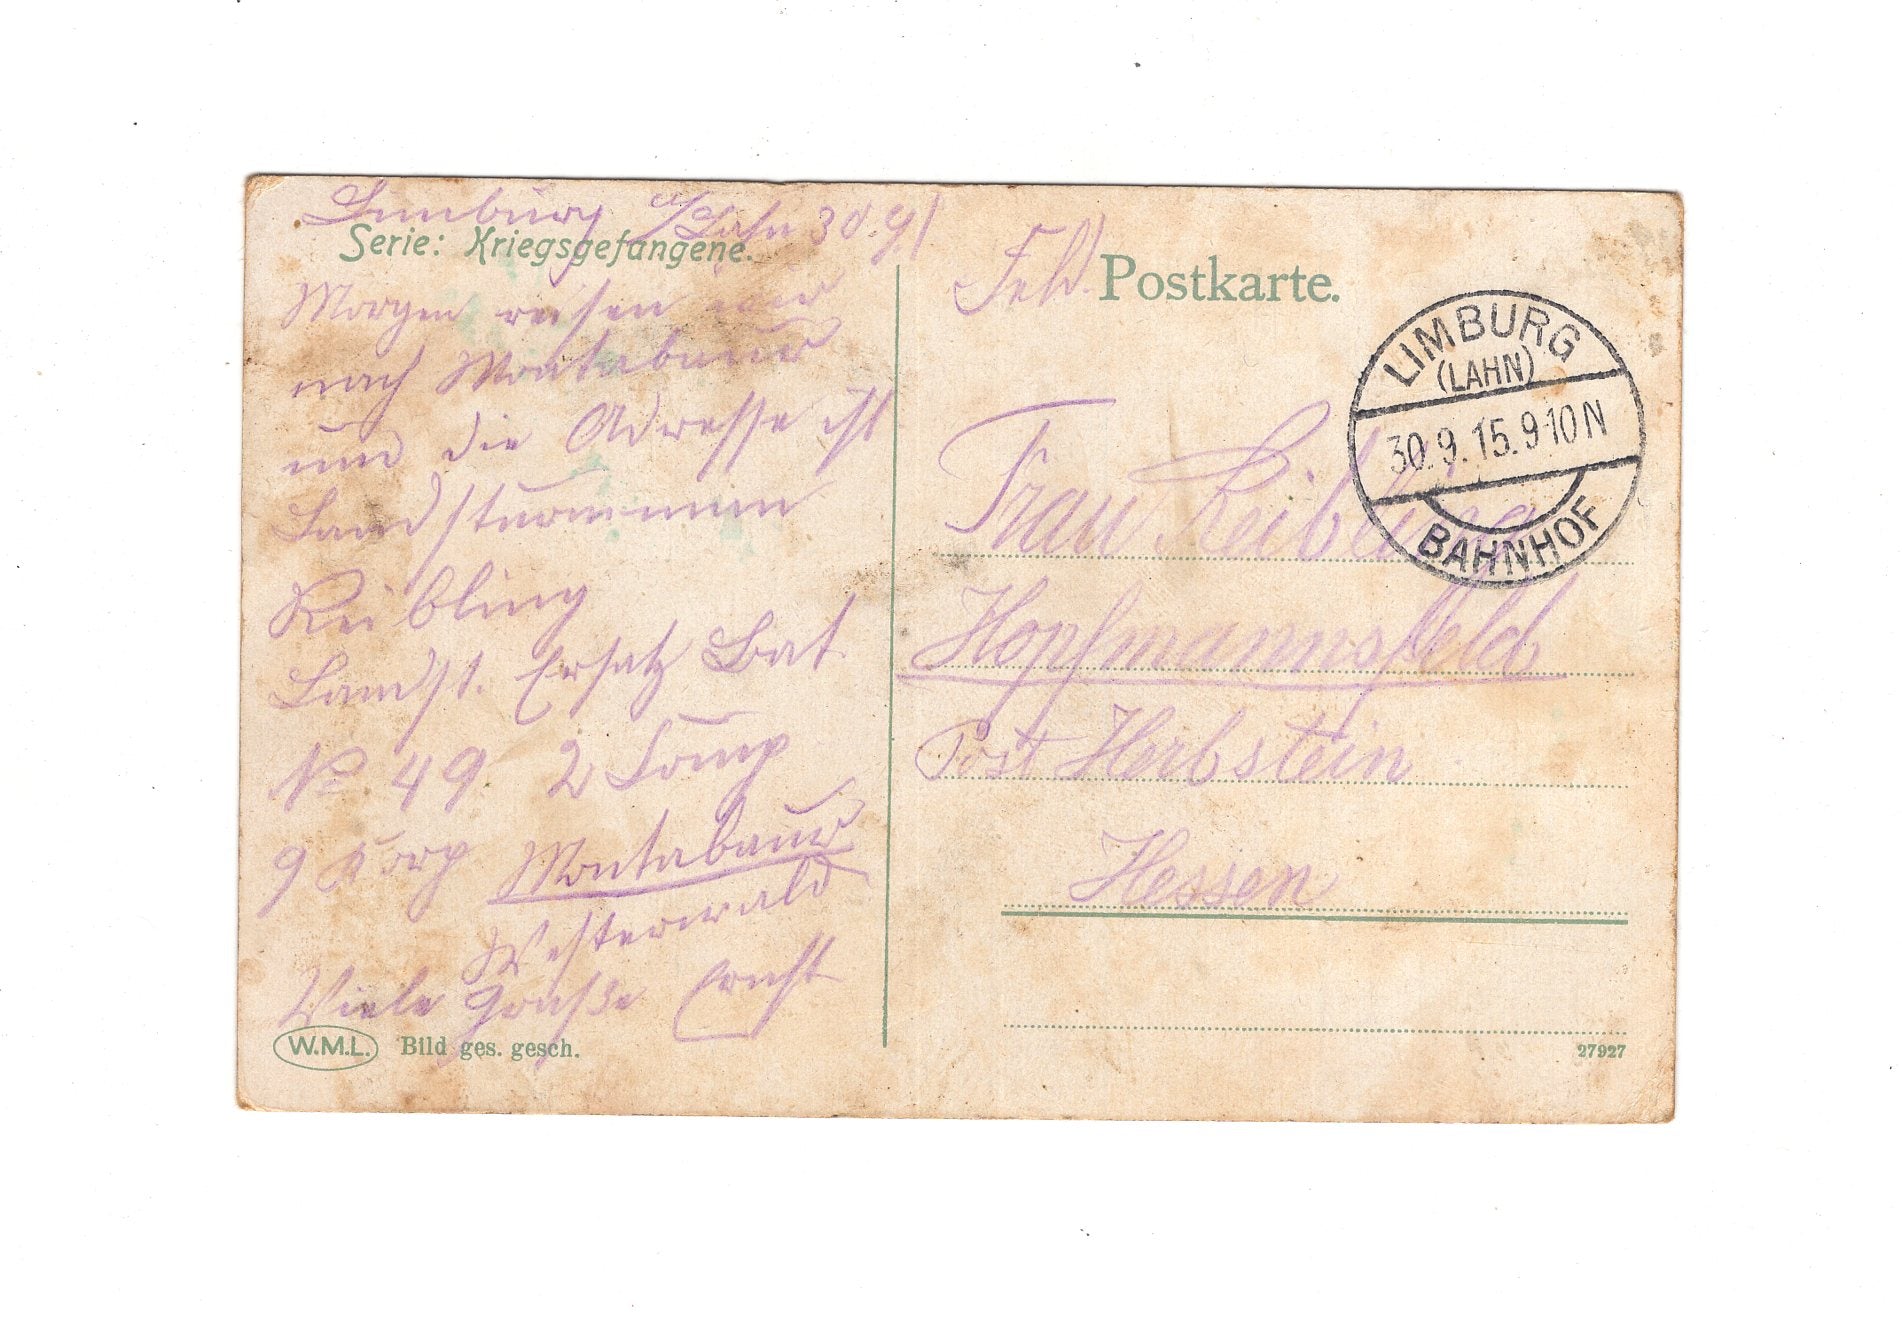 Limburg a/Lahn 30.9/
Serie: Kriegsgefangene.
Morgen reisen wir
nach Montabaur
und die Adresse ist
Landsturmmann
Reibling
Landst. Ersatz Bat
No 49 2 Comp
9 Korp Montabaur
Westerwald
Viele Grüße Ernst
W.M.L. Bild ges. gesch.
Feld Postkarte.
LIMBURG
(LAHN)
30.9.15.9-10N
BAHNHOF
Frau Reibling
Hopfmannsfeld
Post Herbstein
Hessen
27927